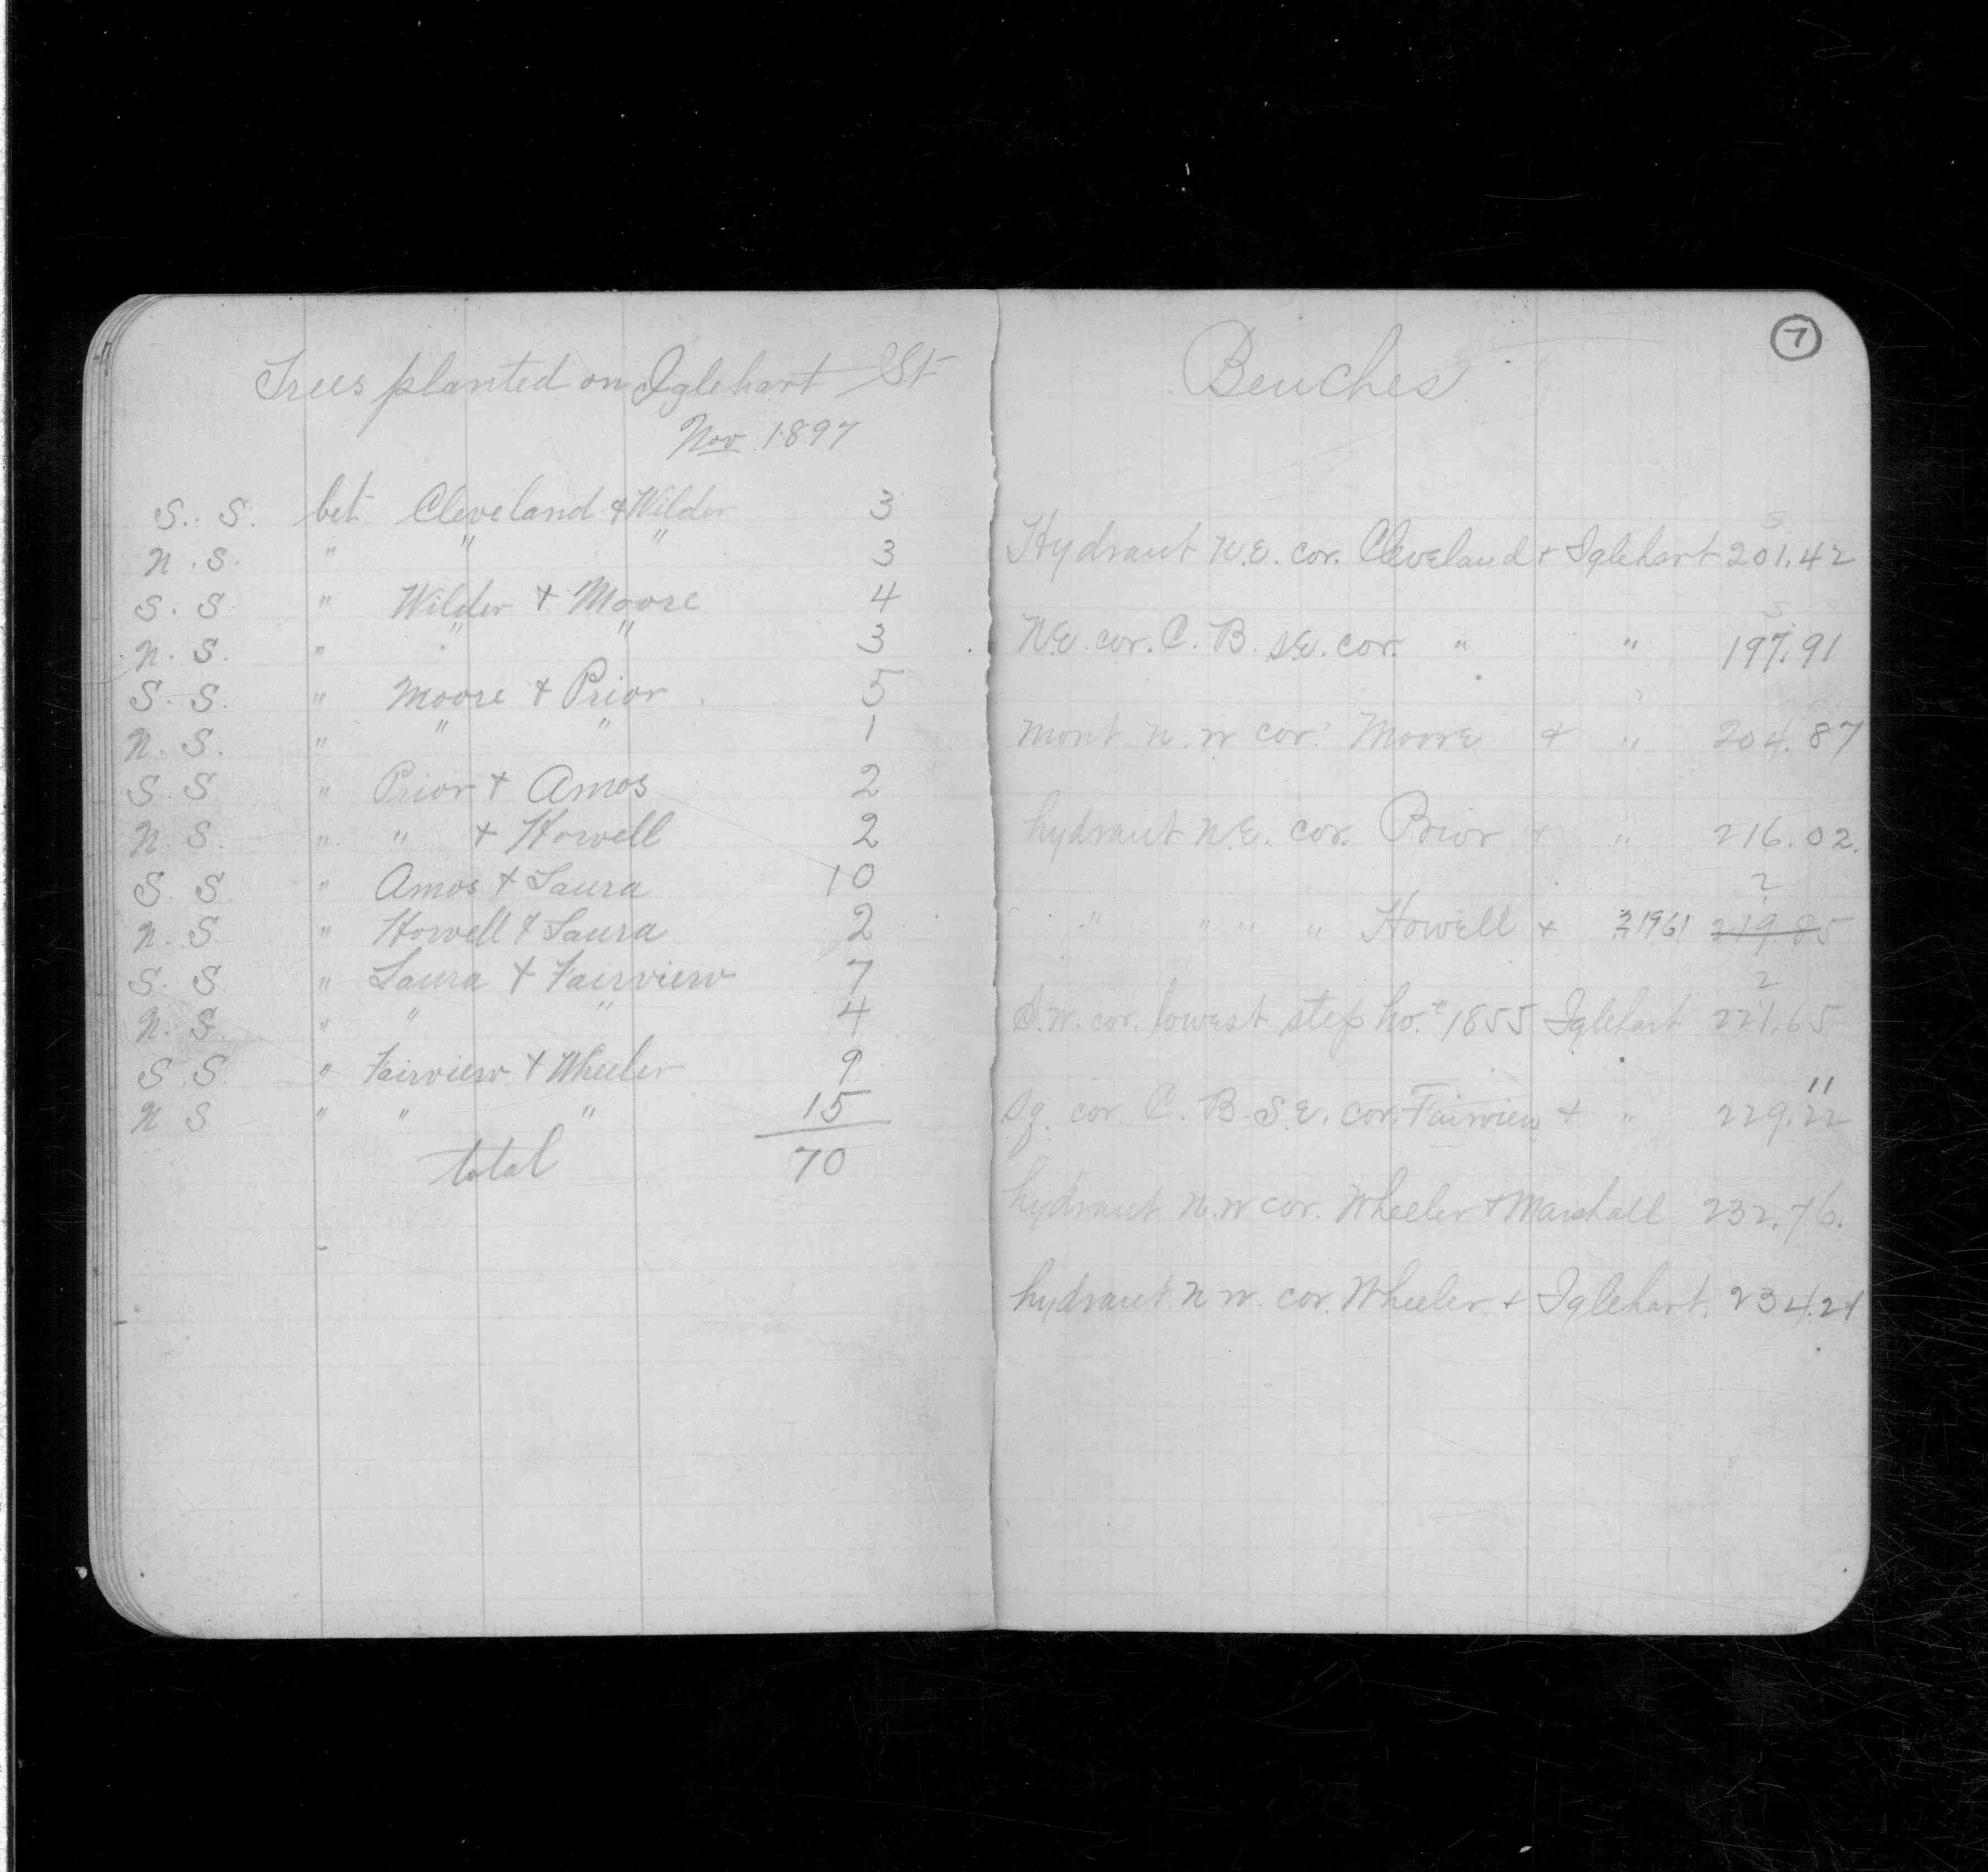 Trees planted on Iglehart St
Nov 1897
S. S. bet Cleveland & Wilder 3
N. S. " " " 3
S. S. " Wilder + Moore 4
N. S. " " " 3
S. S. " Moore + Prior 5
N. S. " " " 1
S. S. " Prior + Amos 2
N. S. " " + Howell 2
S. S. " Amos + Laura 10
N. S. " Howell & Laura 2
S. S. " Laura + Fairview 7
N. S. " " " 4
S. S. " Fairview + Wheeler 9
N S " " " 15
total 70
7
Benches
Hydrant N.E. cor. Cleveland + Iglehart 201.42
N.E. cor. C. B. S.E. cor. " " 197.91
mont. N. W cor. Moore + " 204.87
hydrant N.E. cor. Prior + " 216.02.
" " " " Howell + 219.85
S.W. cor. lowest step ho. # 1855 Iglehart 221.65
11
Sq. cor C. B. S E. cor. Fairview + " 229.22
hydrant N.W cor. Wheeler + Marshall 232.76.
hydrant N W. cor. Wheeler + Iglehart. 234.21